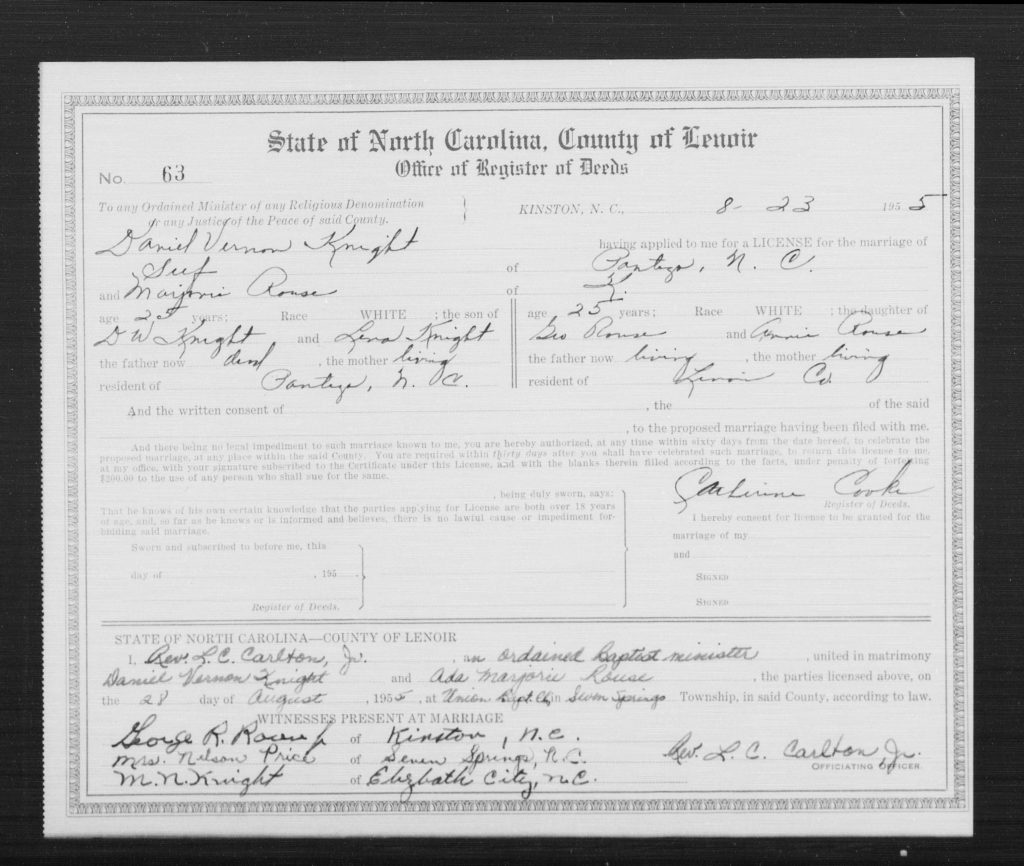 State of North Carolina, County of Lenoir
Office of Register of Deeds
No. 63
To any Ordained Minister of any Religious Denomination
or any Justice of the Peace of said County.
KINSTON, N. C., 8-23 1955
Daniel Vernon Knight having applied to me for a LICENSE for the marriage of
Self of Pantego, N. C.
and Marjorie Rouse of
age 25 years; Race WHITE; the son of
D W Knight and Lena Knight
the father now dead, the mother living
resident of Pantego, N. C.
age 25 years; Race WHITE; the daughter of
Geo Rouse and Annie Rouse
the father now living, the mother living
resident of Lenoir Co.
And the written consent of , the of the said
, to the proposed marriage having been filed with me.
And there being no legal impediment to such marriage known to me, you are hereby authorized, at any time within sixty days from the date hereof, to celebrate the
proposed marriage, at any place within the said County. You are required within thirty days after you shall have celebrated such marriage, to return this license to me,
at my office, with your signature subscribed to the Certificate under this License, and with the blanks therein filled according to the facts, under penalty of forfeiting
$200.00 to the use of any person who shall sue for the same.
Catherine Cooke
Register of Deeds.
, being duly sworn, says:
That he knows of his own certain knowledge that the parties applying for License are both over 18 years
of age, and, so far as he knows or is informed and believes, there is no lawful cause or impediment for-
bidding said marriage.
Sworn and subscribed to before me, this
day of , 195
Register of Deeds.
I hereby consent for license to be granted for the
marriage of my
and
SIGNED
SIGNED
STATE OF NORTH CAROLINA—COUNTY OF LENOIR
I, Rev. L. C. Carlton, Jr. , an ordained Baptist minister , united in matrimony
Daniel Vernon Knight and Ada Marjorie Rouse , the parties licensed above, on
the 28 day of August , 1955, at Union Bapt. Ch, in Seven Springs Township, in said County, according to law.
WITNESSES PRESENT AT MARRIAGE
George R. Rouse Jr of Kinston, N.C.
Mrs. Nelson Price of Seven Springs, N.C.
M. N. Knight of Elizbath City, N.C.
Rev. L. C. Carlton Jr.
OFFICIATING OFFICER.